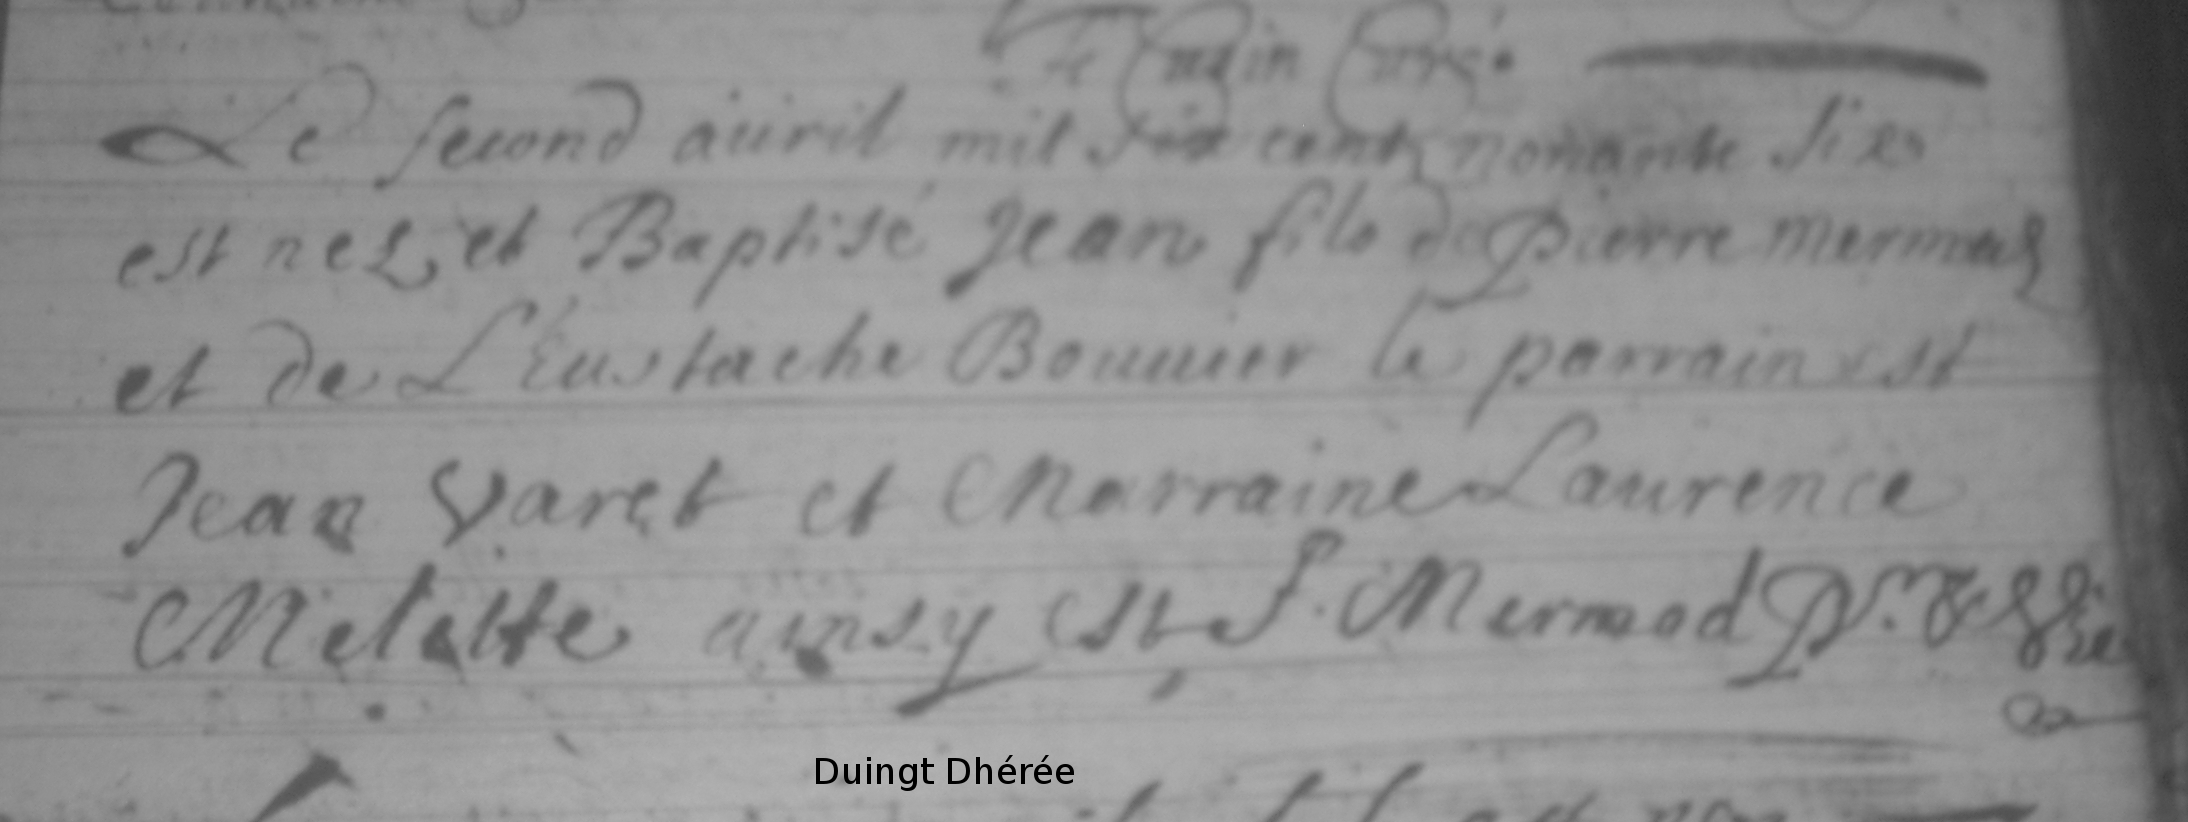 Curé.
Le second auril mil six cent nonante Six
est nez et Baptisé Jean fils de Pierre mermaz
et de L'Eustache Bouuier le parrain est
Jean Varet et Marraine Laurence
ainsy est J. Mermod
Duingt Dhérée